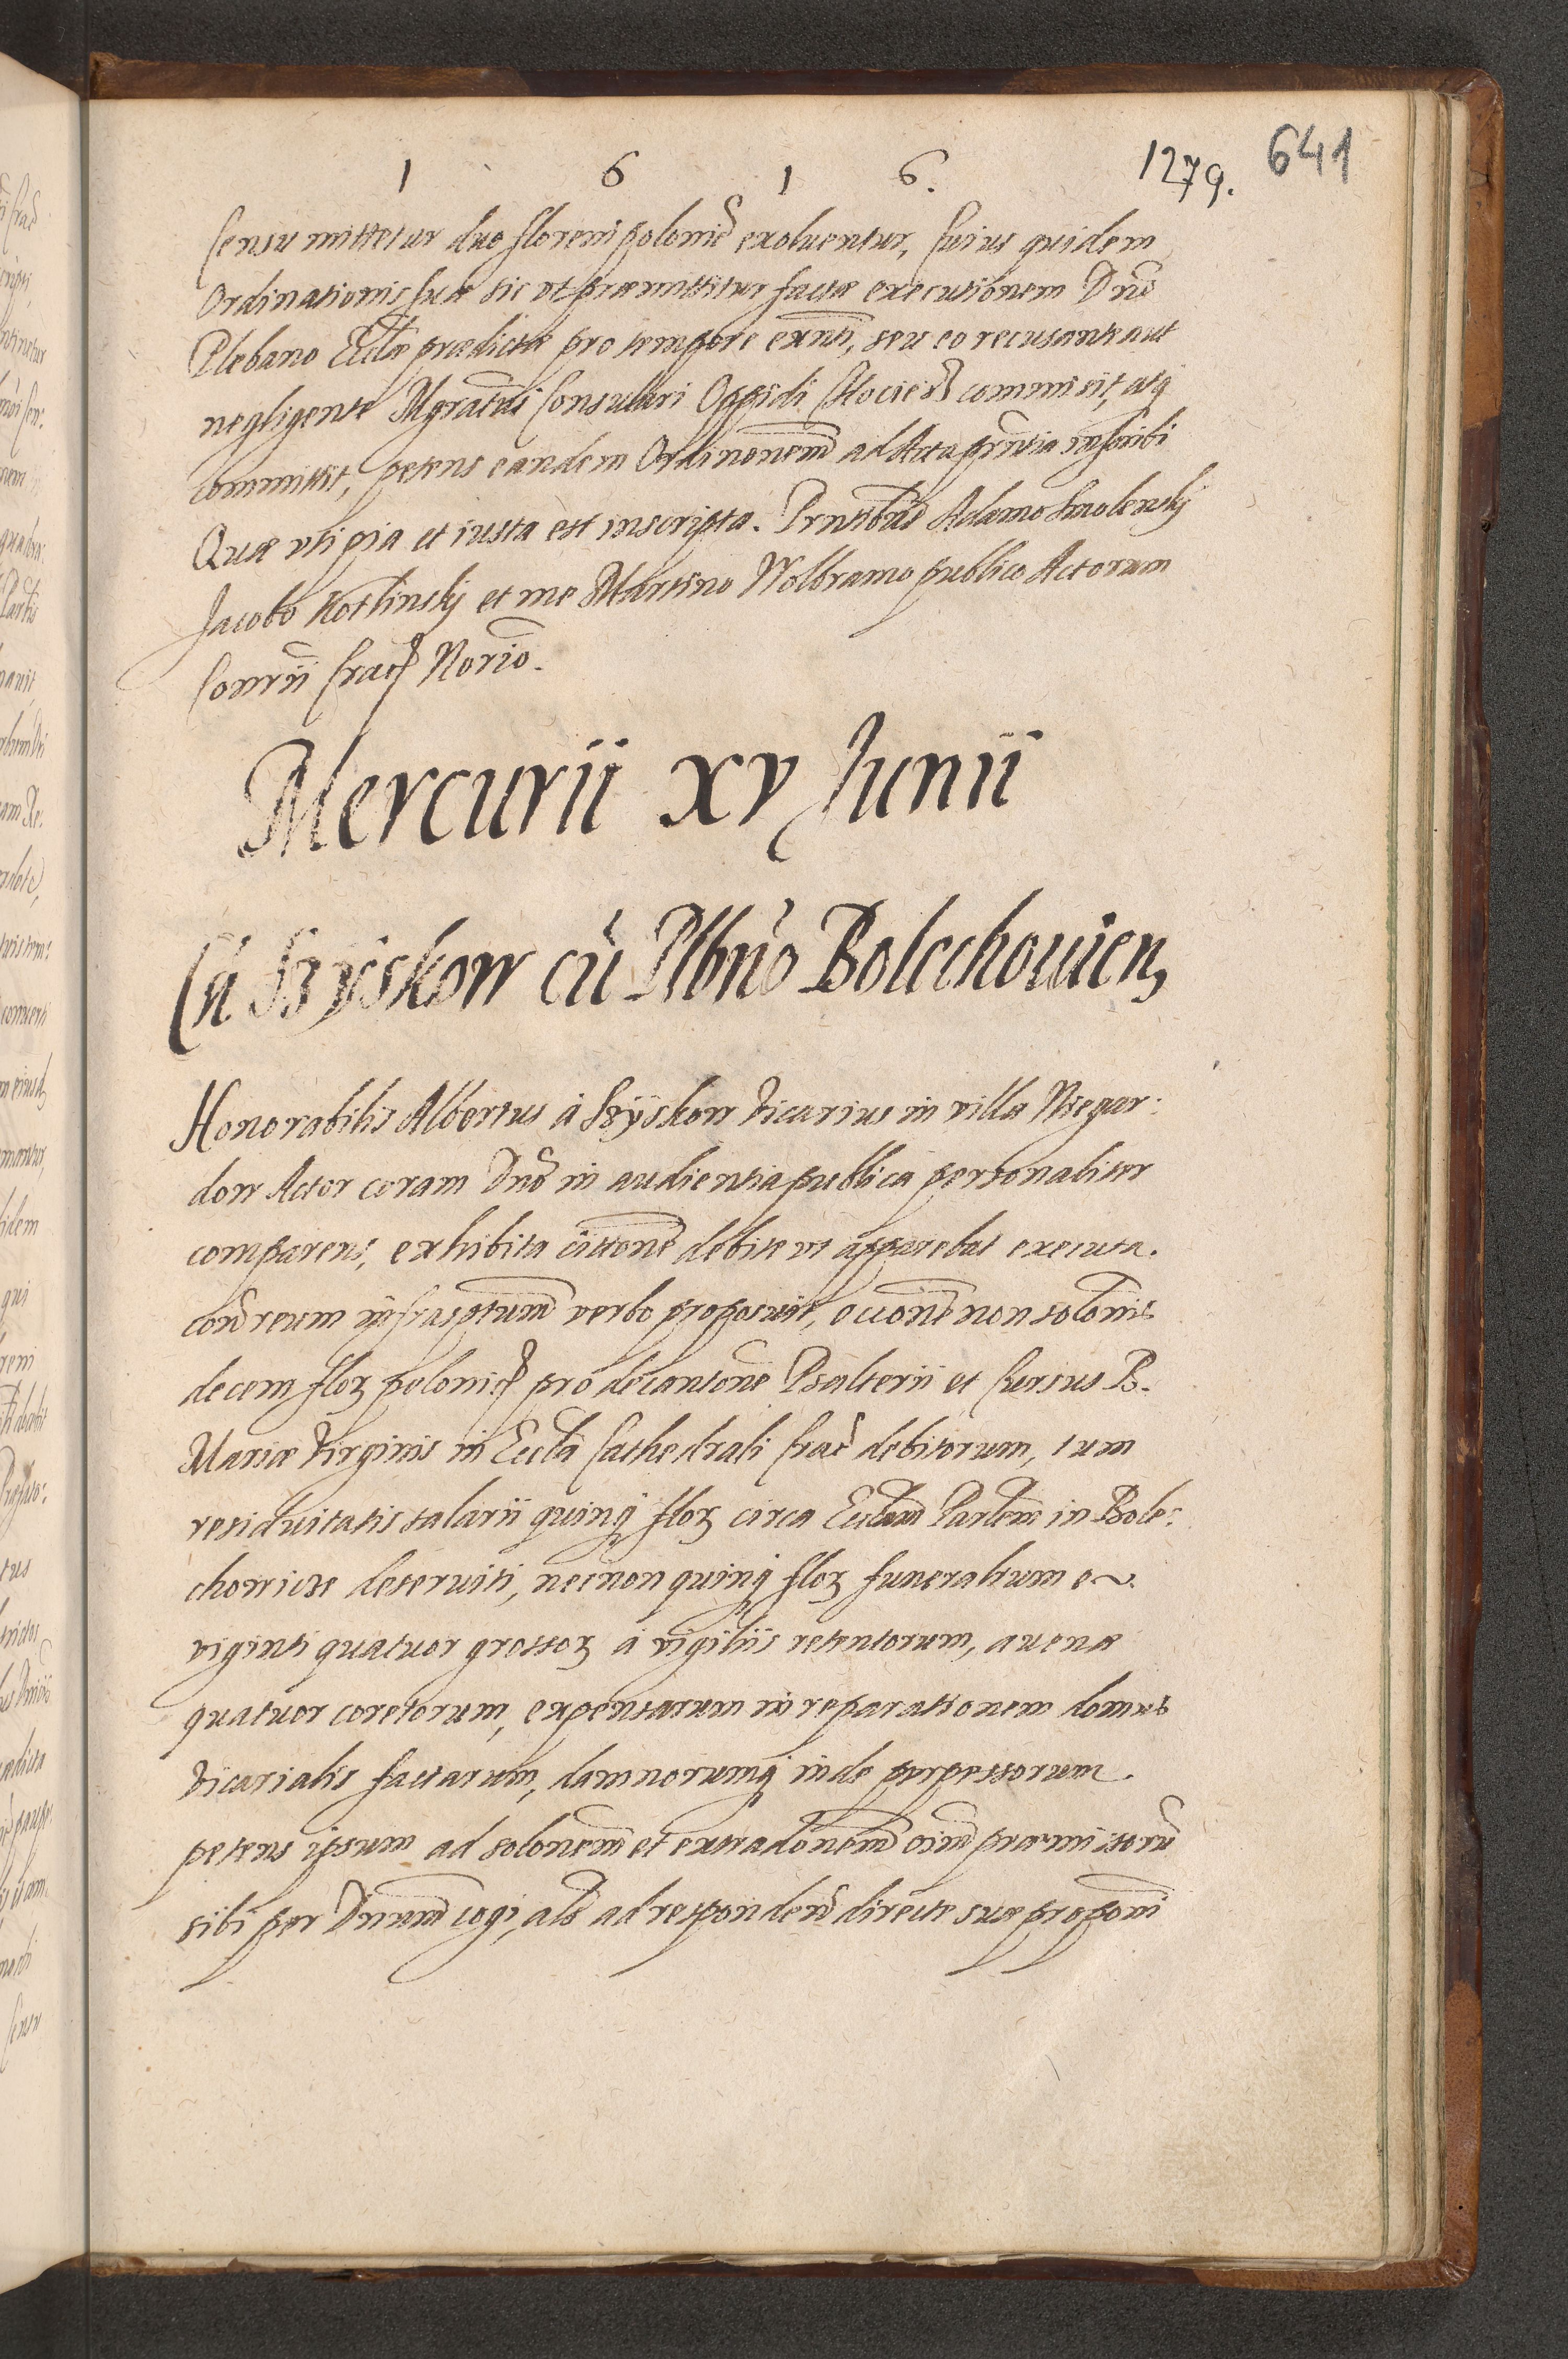 1 6 1 6.
1279. 641
Censu mittetur duo floreni polonic̃ exoluentur, Cuius quidem
Ordinationis suæ sic vt præmittitur factæ executionem Dno
Plebano Ecclæ prædictæ pro tempore exñti, seu eo recusante aut
negligente Mgratui Consulari Oppidi commisit, atq
committit, petens eandem Ordinonem̃ ad Acta pñtia inscribi
Quæ vti pia et iusta est inscripta. Pñtibus Adamo Smolensky
Jacobo Kotlinsky et me Martino Wolbramo publico Actorum
Consrii Crac Norio.
Mercurii xv Junii
Szyskow cu Plbno Bolechouien
Honorabilis Albertus à Szyskow Vicarius in villa Niegar:
dow Actor coram Dno in audientia publica personaliter
comparens, exhibita cittone debite vt apparebat executa.
con reum infrasptum verbo proposuit, occone non solonis
decem flor polonic pro decantone Psalterii et Cursus B.
Mariæ Virginis in Eccla Cathedrali Crac debitorum, tum
residuitatis salarii quinq flor circa Ecclam Parlem in Bole:
chowice deseruiti, necnon quinq flor funeralium
viginti quatuor grossor à vigiliis retentorum, auenæ
quatuor coretorum, expensarum in reparationem domus
Vicarialis factarum, damnorumq inde perpessorum.
petens ipsum ad solonem et extradonem oim præmissoru
sibi per Dnum cogi, als ad responden directe suæ proponi